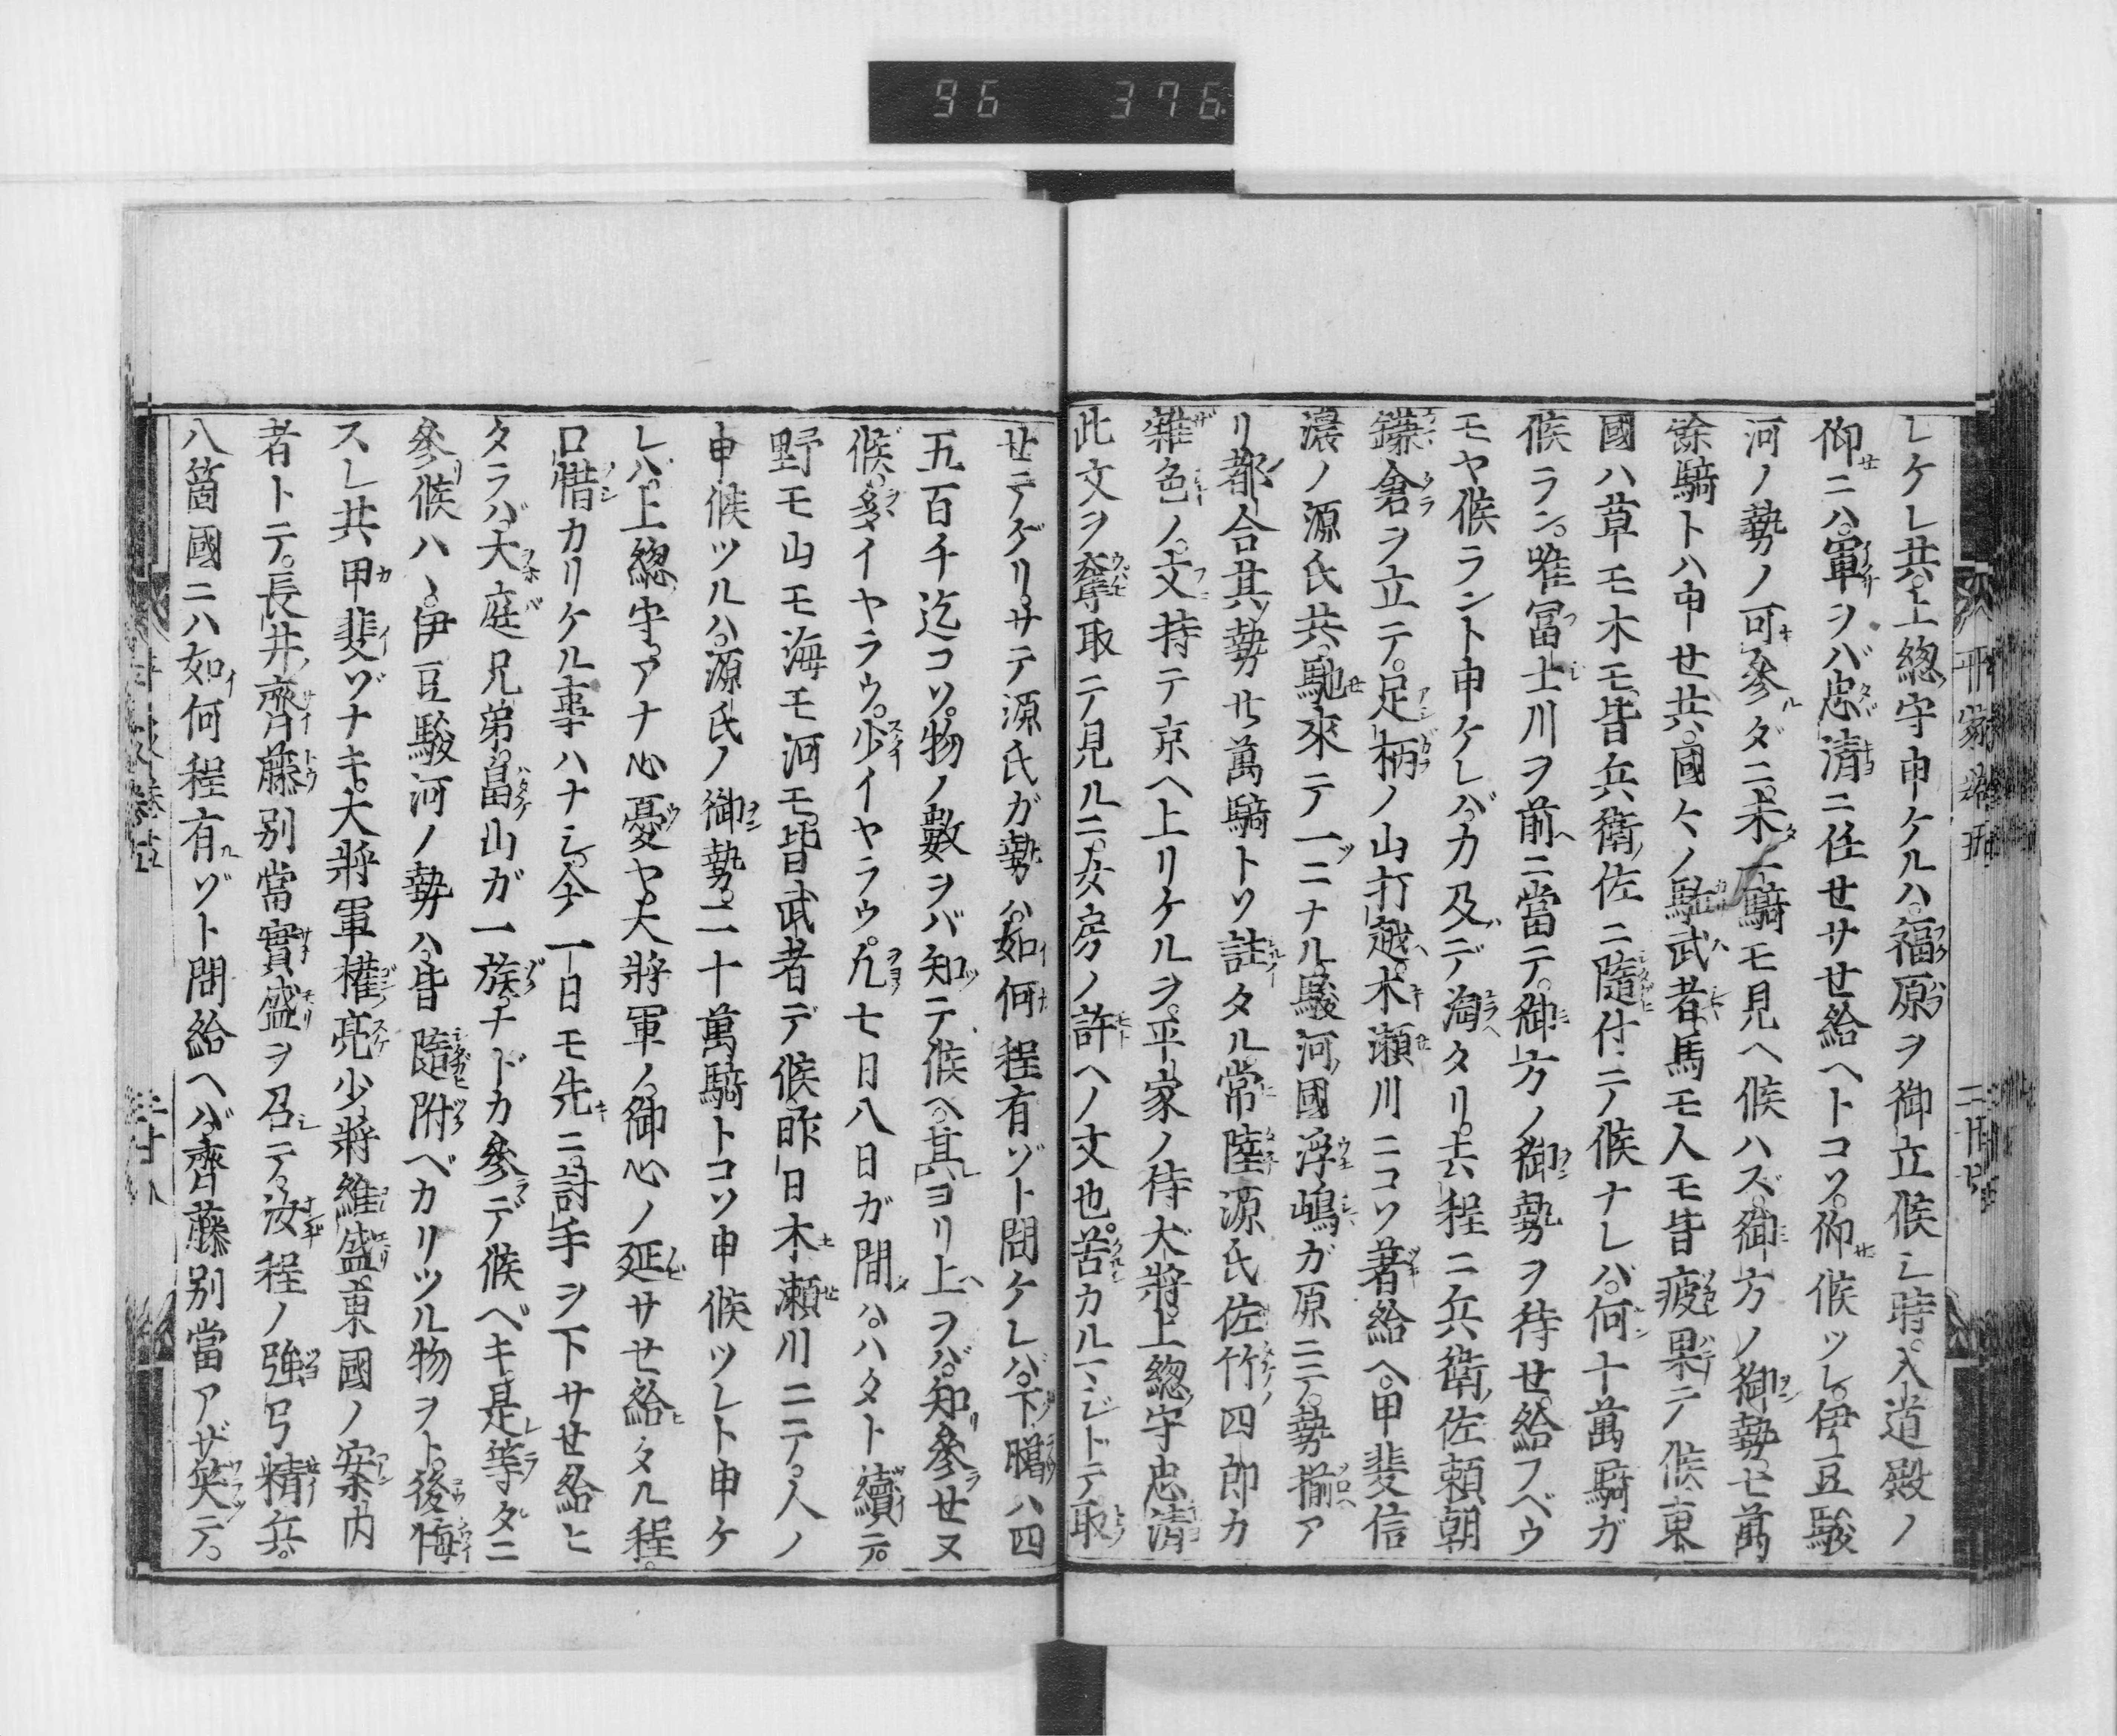 96 376
レケレ共。上總守申ケルハ。福原ヲ御立候シ時。入道殿ノ
仰ニハ。軍ヲバ忠清ニ任せサせ給ヘトコソ。仰候ツレ。伊豆駿
河ノ勢ノ可參ダニ。未一騎モ見ヘ候ハズ。御方ノ御勢。七萬
餘騎トハ申せ共。國々ノ駈武者馬モ人モ皆疲果テ候。東
國ハ草モ木モ。皆兵衛佐ニ隨付テ候ナレバ。何十萬騎ガ
候ラン。唯冨士川ヲ前ニ當テ。御方ノ御勢ヲ待せ給フベウ
モヤ候ラント申ケレバ。力及デ淘タリ。去程ニ兵衛佐頼朝
鎌倉ヲ立テ。足柄ノ山打越。木瀬川ニコソ著給ヘ。甲斐信
濃ノ源氏共。馳來テ一ニナル。駿河國浮嶋ガ原ニテ。勢揃ア
リ。都合其勢廿萬騎トソ註タル。常陸源氏佐竹四郎カ
雜色ノ。文持テ京ヘ上リケルヲ。平家ノ侍大將。上總守忠清
此文ヲ奪取テ見ルニ。女房ノ許ヘノ文也。苦カルマジトテ取
せテゲリ。サテ源氏ガ勢ハ。如何程有ゾト問ケレバ。下臈ハ四
五百千迄コソ。物ノ數ヲバ知テ候ヘ。其ヨリ上ヲバ。知參せヌ
候。多イヤラウ。少イヤラウ。凡七日八日ガ間ハ。ハタト續テ。
野モ山モ海モ河モ。皆武者デ候。昨日木瀬川ニテ。人ノ
申候ツルハ。源氏ノ御勢。二十萬騎トコソ申候ツレト申ケ
レバ。上總守。アナ心憂ヤ。大將軍ノ。御心ノ延サせ給タル程。
口惜カリケル事ハナシ。今一日モ先ニ。討手ヲ下サせ給ヒ
タラバ。大庭兄弟。畠山ガ一族。ナドカ參デ候ベキ。是等ダニ
參候ハヽ。伊豆駿河ノ勢ハ。皆隨附ベカリツル物ヲト。後悔
スレ共。甲斐ゾナキ。大將軍權亮少將維盛。東國ノ案内
者トテ。長井齊藤別當實盛ヲ召テ。汝程ノ強弓精兵。
八箇國ニハ如何程有ゾト問給ヘバ。齊藤別當アザ笑テ。